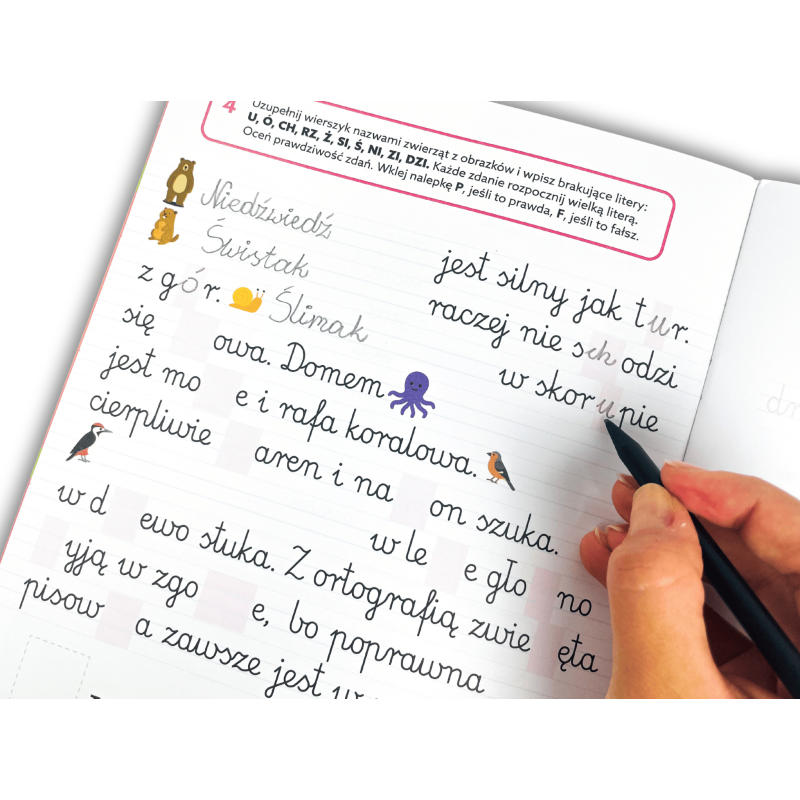 4 Uzupełnij wierszyk nazwami zwierząt z obrazków i wpisz brakujące litery:
U, Ó, CH, RZ, Ż, SI, Ś, NI, ZI, DZI. Każde zdanie rozpocznij wielką literą.
Oceń prawdziwość zdań. Wklej nalepkę P, jeśli to prawda, F, jeśli to fałsz.
Niedźwiedź jest silny jak tur.
Świstak raczej nie schodzi
z gór. Ślimak w skorupie
się owa. Domem
jest mo e i rafa koralowa.
cierpliwie aren i na on szuka.
w le e gło no
w d ewo stuka. Z ortografią zwie ęta
yją w zgo e, bo poprawna
pisow a zawsze jest w